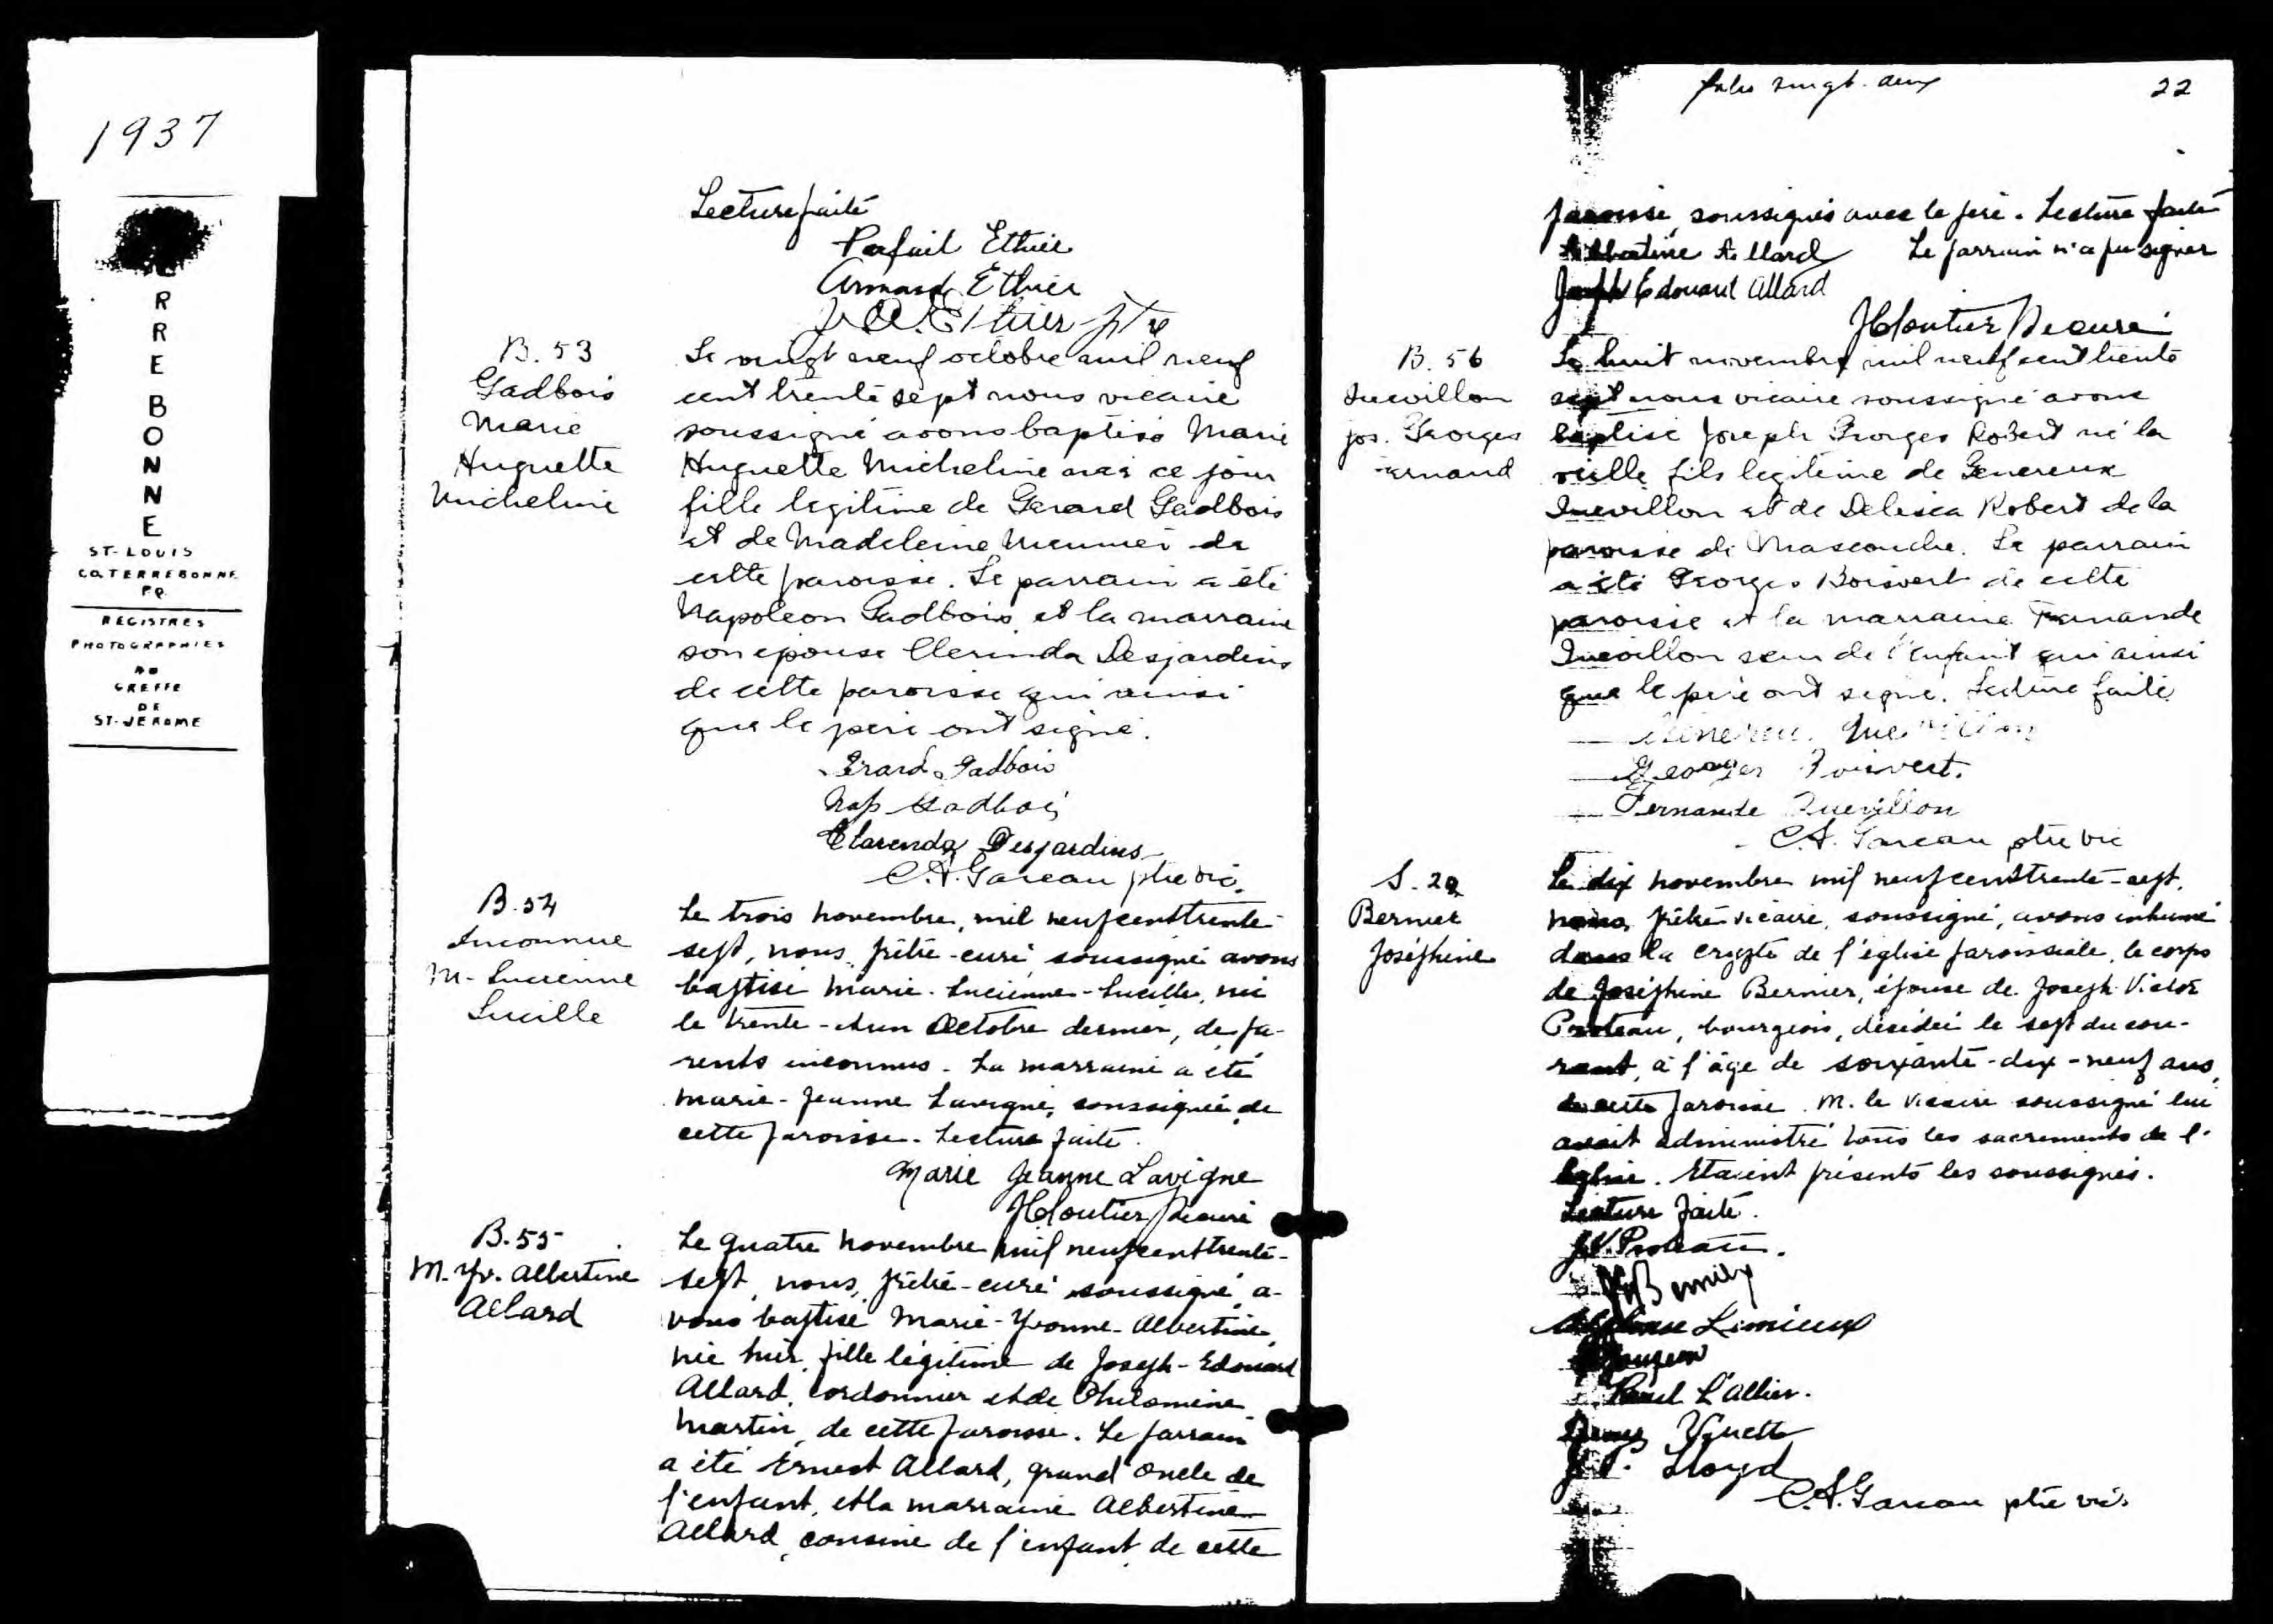 1937
R
R
E
B
O
N
N
E
ST-LOUIS
CO. TERREBONNE
P.Q.
REGISTRES
PHOTOGRAPHIES
AU
GREFFE
DE
ST-JEROME
Lecture faite
Parfait Ethier
Armand Ethier
J. A. Ethier ptre
B. 53
Gadbois
Marie
Huguette
Micheline
Le vingt neuf octobre mil neuf
cent trente sept nous vicaire
soussigné avons baptisé Marie
Huguette Micheline née ce jour
fille legitime de Gerard Gadbois
et de Madeleine Meunier de
cette paroisse. Le parrain a été
Napoleon Gadbois et la marraine
son epouse Clerinda Desjardins
de cette paroisse qui ainsi
que le père ont signé.
Gérard Gadbois
Nap Gadbois
Clarenda Desjardins
C. A. Gareau ptre vic.
B. 54
Inconnue
M- Lucienne
Lucille
Le trois novembre, mil neuf cent trente-
sept, nous, prêtre-curé soussigné avons
baptisé Marie-Lucienne-Lucille, née
le trente-et un Octobre dernier, de pa-
rents inconnus. La marraine a été
Marie-Jeanne Lavigne, soussignée de
cette paroisse. Lecture faite.
Marie Jeanne Lavigne
B. 55
M. Yv. Albertine
Allard
Le quatre novembre mil neuf cent trente-
sept, nous, prêtre-curé soussigné, a-
vons baptisé Marie-Yvonne-Albertine,
née hier, fille légitime de Joseph-Edouard
Allard, cordonnier et de Philomène
Martin, de cette paroisse. Le parrain
a été Ernest Allard, grand oncle de
l'enfant, et la marraine Albertine
Allard, cousine de l'enfant, de cette
folio vingt-deux 22
paroisse, soussignés avec le père. Lecture faite
Albertine Allard Le parrain n'a pu signer
Joseph Edouard Allard
B. 56
Quevillon
jos. Georges
Fernand
Le huit novembre mil neuf cent trente
sept nous vicaire soussigné avons
baptisé Joseph Georges Robert né la
veille fils legitime de Genereux
Quevillon et de Delisca Robert de la
paroisse de Mascouche. Le parrain
a été Georges Boisvert de cette
paroisse et la marraine Fernande
Quevillon soeur de l'enfant qui ainsi
que le père ont signé. Lecture faite
Genereux Quevillon
Georges Boisvert.
Fernande Quevillon
C. A. Gareau ptre vic
S. 20
Bernier
Joséphine
Le dix novembre mil neuf cent trente-sept,
nous, prêtre vicaire, soussigné, avons inhumé
dans la crypte de l'église paroissiale, le corps
de Joséphine Bernier, épouse de Joseph Victor
Proteau, bourgeois, décédée le sept du cou-
rant, à l'âge de soixante-dix-neuf ans,
de cette paroisse. M. le vicaire soussigné lui
avait administré tous les sacrements de l'
Eglise. Etaient présents les soussignés.
Lecture faite.
J.V. Proteau.
Lemieux
Paul L'Allier.
Lloyd
C. A. Gareau ptre vic.